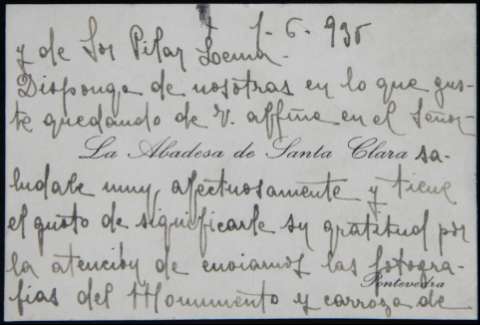 † 1-6-935
y de Sor Pilar Lorma.
Disponga de nosotras en lo que gus-
te quedando de V. affma en el Señor
La Abadesa de Santa Clara sa-
ludale muy, afectuosamente y tiene
el gusto de significarle su gratitud por
la atención de enviarnos las fotogra-
Pontevedra
fias del Monumento y carroza de